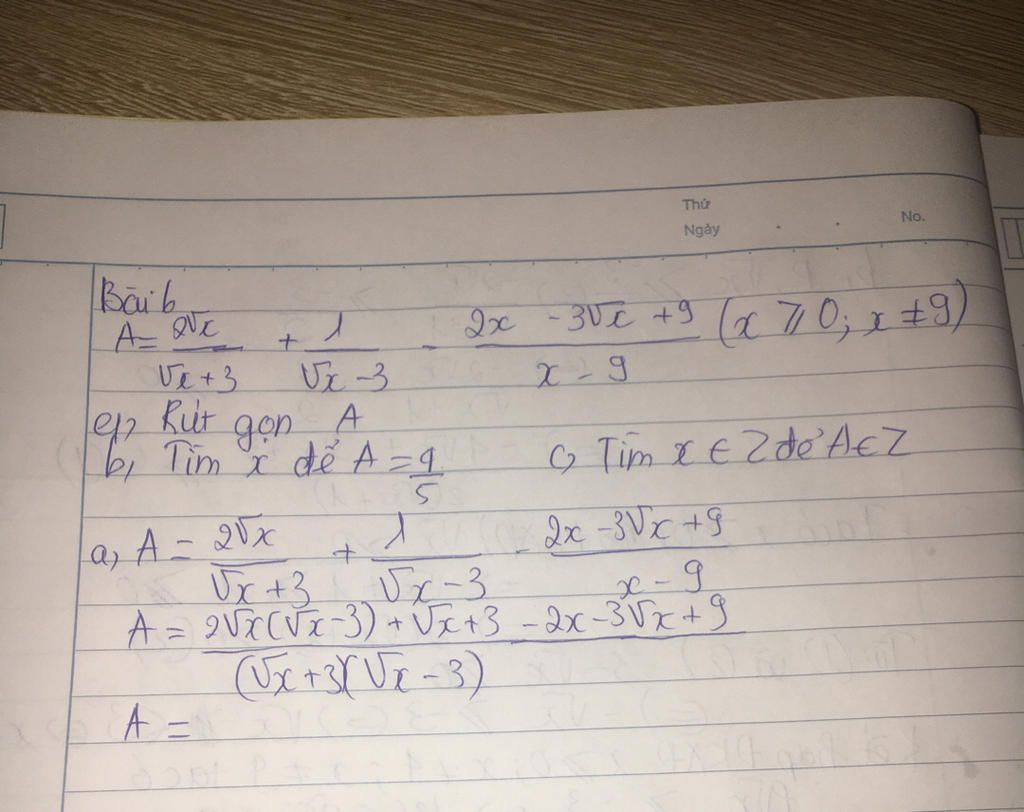 Thứ
Ngày No.
Bài 6
A = 2√x/(√x + 3) + 1/(√x - 3) - (2x - 3√x + 9)/(x - 9) (x ⩾ 0; x ≠ 9)
a, Rút gọn A
b, Tìm x để A = 9/5 c, Tìm x ∈ Z để A ∈ Z
a, A = 2√x/(√x + 3) + 1/(√x - 3) - (2x - 3√x + 9)/(x - 9)
A = (2√x(√x - 3) + √x + 3 - 2x - 3√x + 9)/((√x + 3)(√x - 3))
A =